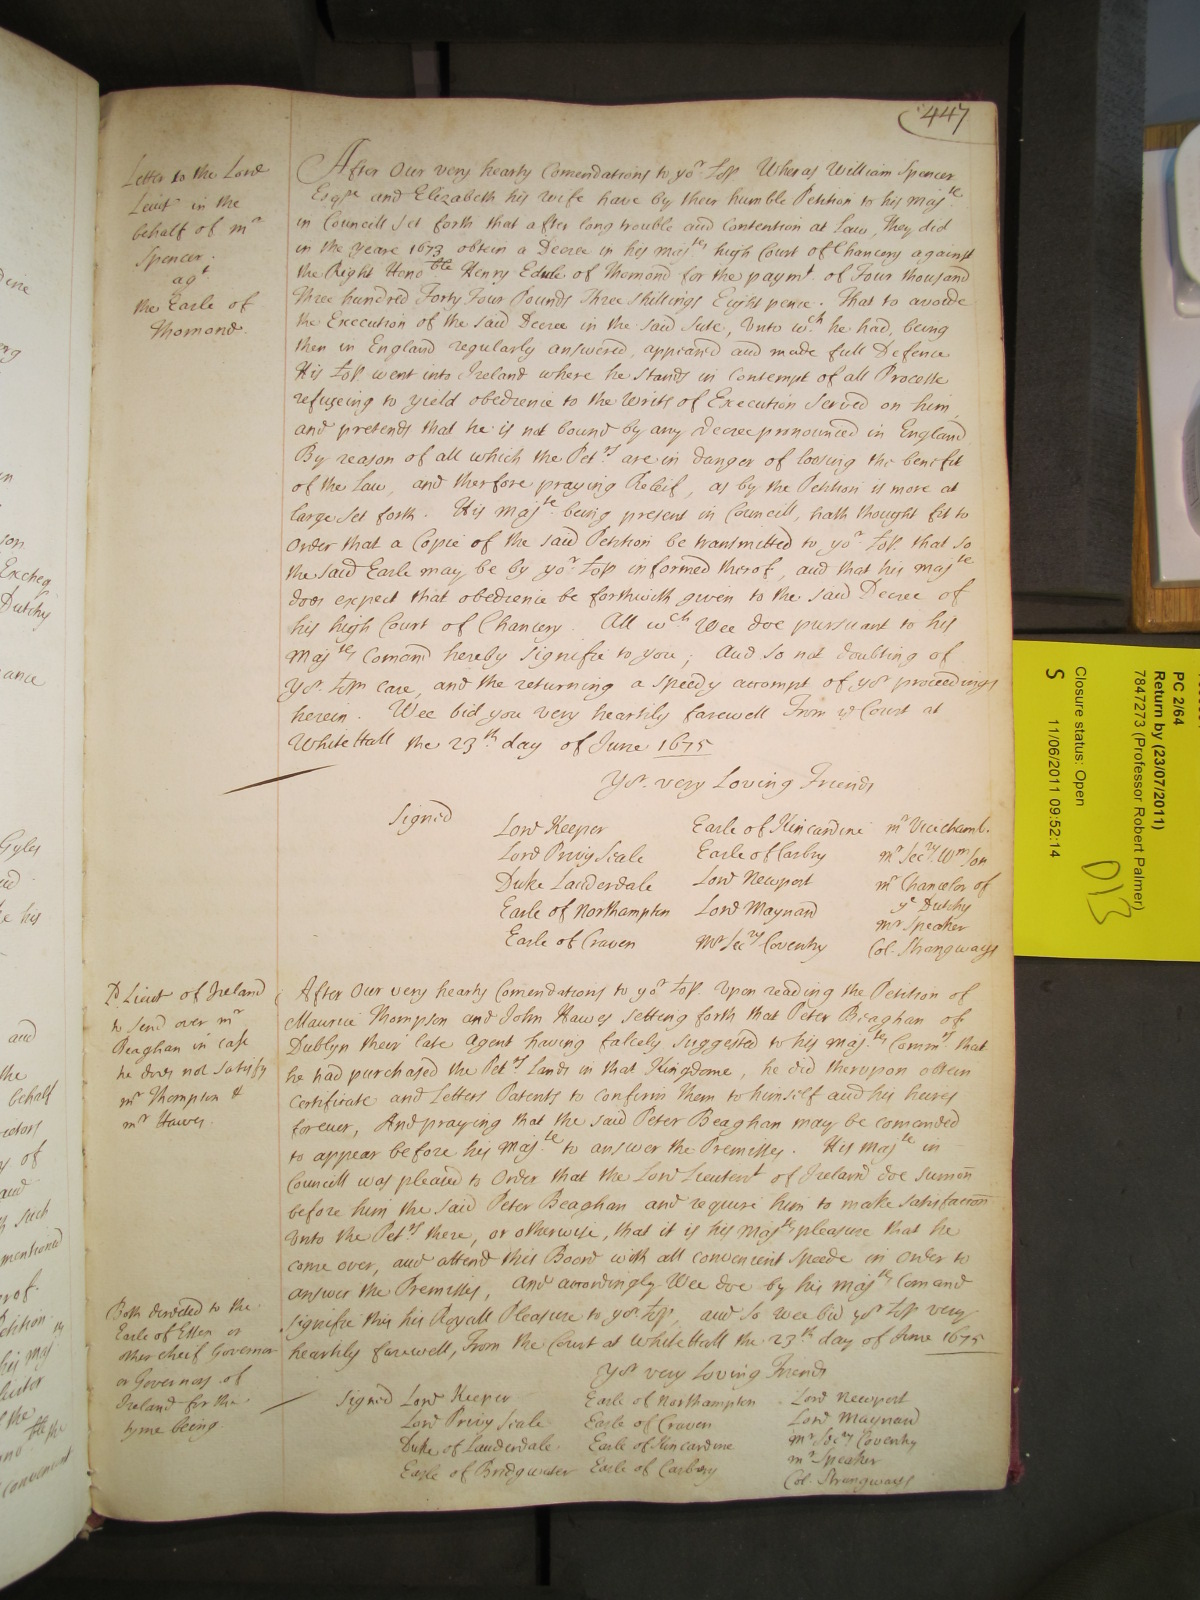 447
Letter to the Lord
Lieut in the
behalf of mr
Spencer.
agt
the Earle of
Thomond.
After Our very hearty Comendations to yor Lop. Wheras William Spencer
Esqre and Elizabeth his wife have by their humble Petition to his Majte
in Councill set forth that after long trouble and contention at Law, they did
in the yeare 1673 obtein a Decree in his Majtes high Court of Chancery against
the Right Honoble Henry Earle of Thomond for the paymt. of Four thousand
Three hundred Forty Four Pounds Three shillings Eight pence. That to avoide
the Execution of the said Decree in the said Sute, Unto wch he had, being
then in England regularly answered, appeared and made full Defence
His Lop went into Ireland where he stands in Contempt of all Processe
refuseing to yield obedience to the Writs of Execution served on him,
and pretends that he is not bound by any Decree pronounced in England
By reason of all which the Petrs are in danger of loosing the benefit
of the Law, and therfore praying Releif, as by the Petition is more at
large set forth. His Majte being present in Councill, hath thought fit to
Order that a Copie of the said Petition be transmitted to yor Lop. that so
the said Earle may be by yor Lop informed therof, and that his Majte
does expect that obedience be forthwith given to the said Decree of
his high Court of Chancery. All wch Wee doe pursuant to his
Majtes Comand hereby signifie to you; And so not doubting of
yor. Lops care, and the returning a speedy accompt of yor proceedings
herein. Wee bid you very heartily farewell From ye Court at
White Hall the 23th day of June 1675
Yor. very Loving Friends
Signed
Lord Keeper Earle of Kincardine mr Vicechamb.
Lord Privy Seale Earle of Carbry mr Secry. Wmson
Duke Lauderdale Lord Newport mr Chancelor of
ye Dutchy
Earle of Northampton Lord Maynard mr Speaker
Earle of Craven Mr Secry Coventry Col. Strangways
Ld Lieut of Ireland
to send over mr
Beaghan in case
he does not satisfy
mr Thompson &
mr Hawes.
After Our very hearty Comendations to yor Lop. Upon reading the Petition of
Maurice Thompson and John Hawes setting forth that Peter Beaghan of
Dublyn their late Agent having falcely suggested to his Majtes Commrs that
he had purchased the Petrs Lands in that Kingdome, he did therupon obtein
Certificate and Letters Patents to confirm them to himself and his heires
forever, And praying that the said Peter Beaghan may be comanded
to appear before his Majte to answer the Premisses. His Majte in
Councill was pleased to Order that the Lord Lieutent of Ireland doe sumon
before him the said Peter Beaghan and require him to make satisfaction
Unto the Petrs there, or otherwise, that it is his Majtes pleasure that he
come over, and attend this Board with all convenient speede in order to
answer the Premisses, And accordingly Wee doe by his Majtes Comand
signifie this his Royall Pleasure to yor Lop, and so wee bid yor Lop very
heartily farewell, From the Court at White Hall the 23th day of June 1675
Yor very Loving Friends
Both directed to the
Earle of Essex or
other cheif Governor
or Governors of
Ireland for the
tyme being
Signed Lord Keeper Earle of Northampton Lord Newport
Lord Privy Seale Earle of Craven Lord Maynard
Duke of Lauderdale Earle of Kincardine mr Secry Coventry
Earle of Bridgwater Earle of Carbery mr Speaker
Col. Strangways
PC 2/64
Return by (23/07/2011)
7847273 (Professor Robert Palmer)
Closure status: Open
S 11/06/2011 09:52:14
D13